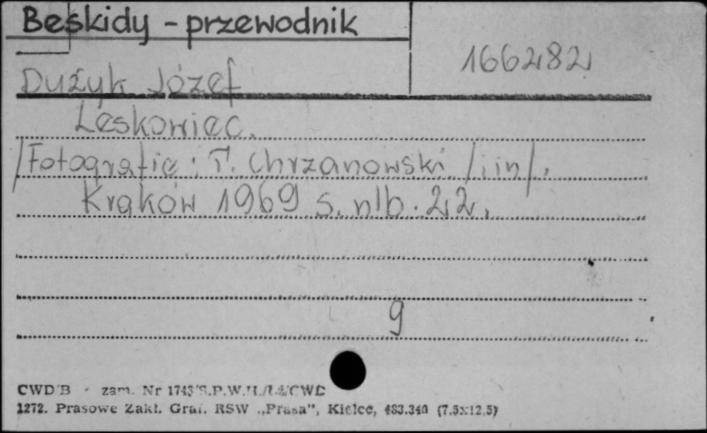 Beskidy - przewodnik
166282
Dużyk Józef
Leskowiec.
/Fotografie: T. Chrzanowski /i in/.
Kraków 1969 s. nlb. 22.
9
CWD/B - zam. Nr 1743
1272. Prasowe Zakł. Graf. RSW „Prasa”, Kielce, 483.340 (7.5x12.5)